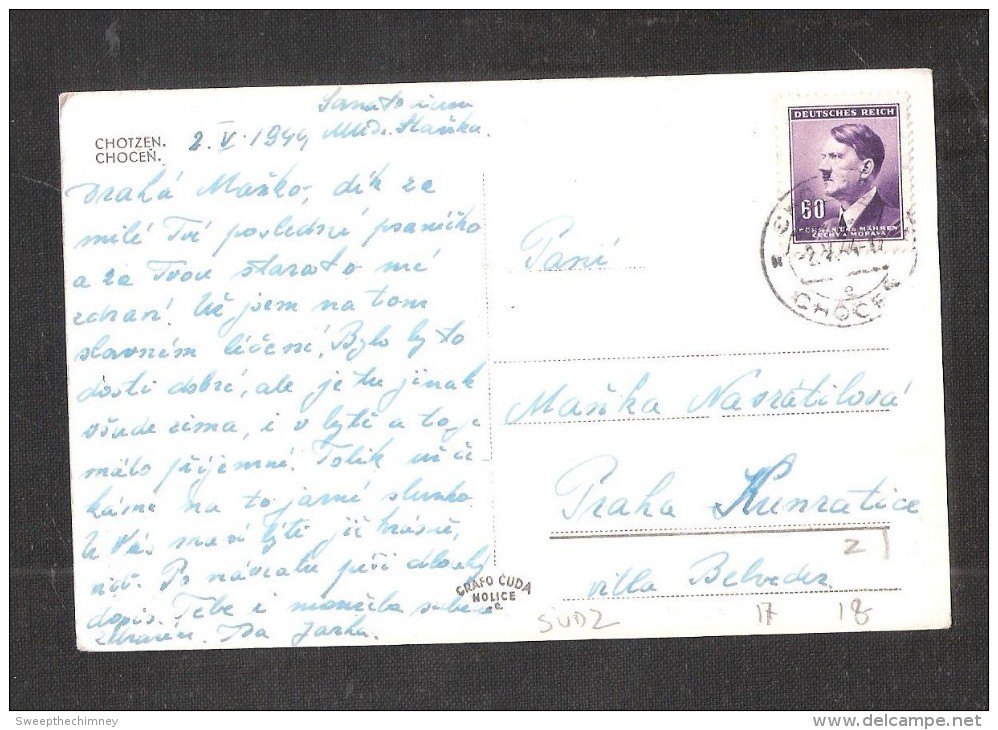 CHOTZEN.
CHOCEŇ.
Sanatorium
2. V. 1944
Drahá Mařko, dík za
milé Tvé poslední psaníčko
a za Tvou starost o mé
zdraví! Už jsem na tom
slavném léčení. Bylo by to
dosti dobré, ale je tu jinak
všude zima, i v bytě a to je
málo příjemné. Tolik už če-
káme na to jarní slunko
U Vás musí býti již krásně,
Po návratu píši dlouhý
dopis. Tebe i manžela srdečně
zdravím. Jarka.
GRAFO ČUDA
HOLICE
č.
DEUTSCHES REICH
60
BÖHMEN UND MÄHREN
ČECHY A MORAVA
-2.V.44-17
CHOCEŇ
Paní
Mařka Navrátilová
Praha Kunratice
villa Belveder
2
SUDZ 17 18
Sweepthechimney
www.delcampe.net